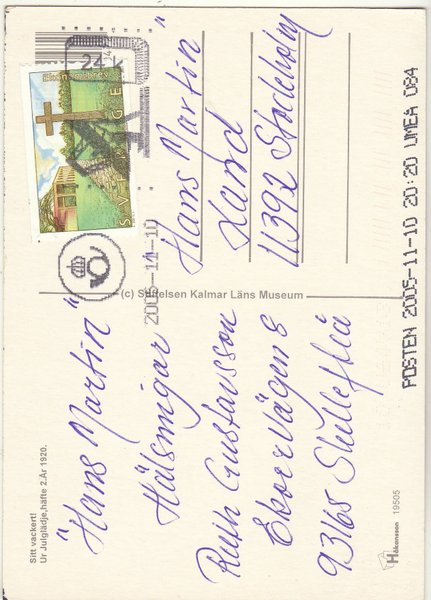 Sitt vackert!
Ur Julglädje,häfte 2.År 1920.
"Hans Martin"
Hälsningar
Ruth Gustavsson
Ekorrvägen 8
93165 Skellefteå
Håkansson 19505
(c) Stiftelsen Kalmar Läns Museum
24
Ekonomibrev
SVERIGE
2005-11-10
"Hans Martin"
Lund
11392 Stockholm
POSTEN 2005-11-10 20:20 UMEA 084